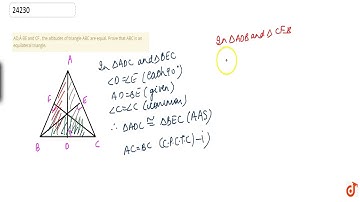 24230
AD, BE and CF, the altitudes of triangle ABC are equal. Prove that ABC is an
equilateral triangle.
A
F
E
B
D
C
In △ADC and △BEC
∠D=∠E (each 90°)
AD=BE (given)
∠C=∠C (common)
∴ △ADC ≅ △BEC (AAS)
AC=BC (C.P.C.T.C)-i)
In △ADB and △CFB
doubtnut